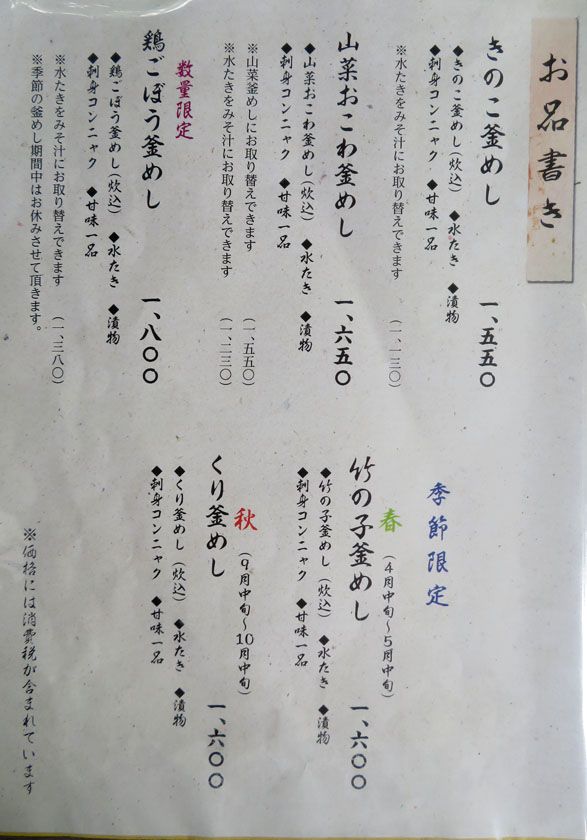 お品書き
きのこ釜めし 一、五五〇
◆きのこ釜めし(炊込) ◆水たき ◆漬物
◆刺身コンニャク ◆甘味一品
※水たきをみそ汁にお取り替えできます (一、一三〇)
山菜おこわ釜めし 一、六五〇
◆山菜おこわ釜めし(炊込) ◆水たき ◆漬物
◆刺身コンニャク ◆甘味一品
※山菜釜めしにお取り替えできます (一、五五〇)
※水たきをみそ汁にお取り替えできます (一、二三〇)
数量限定
鶏ごぼう釜めし 一、八〇〇
◆鶏ごぼう釜めし(炊込) ◆水たき ◆漬物
◆刺身コンニャク ◆甘味一品
※水たきをみそ汁にお取り替えできます (一、三八〇)
※季節の釜めし期間中はお休みさせて頂きます。
季節限定
春 (4月中旬〜5月中旬)
竹の子釜めし 一、六〇〇
◆竹の子釜めし(炊込) ◆水たき ◆漬物
◆刺身コンニャク ◆甘味一品
秋 (9月中旬〜10月中旬)
くり釜めし 一、六〇〇
◆くり釜めし(炊込) ◆水たき ◆漬物
◆刺身コンニャク ◆甘味一品
※価格には消費税が含まれています